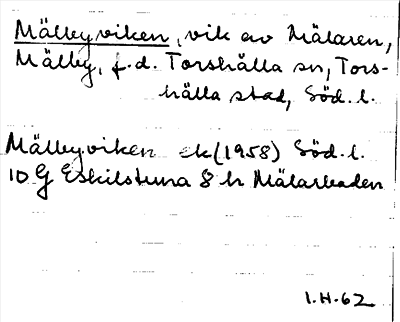 Mälbyviken, vik av Mälaren,
Mälby, f.d. Torshälla sn, Tors-
hälla stad, Söd. l.
Mälbyviken ek (1958) Söd. l.
10 G Eskilstuna 8 h Mälarbaden
I.H.-62